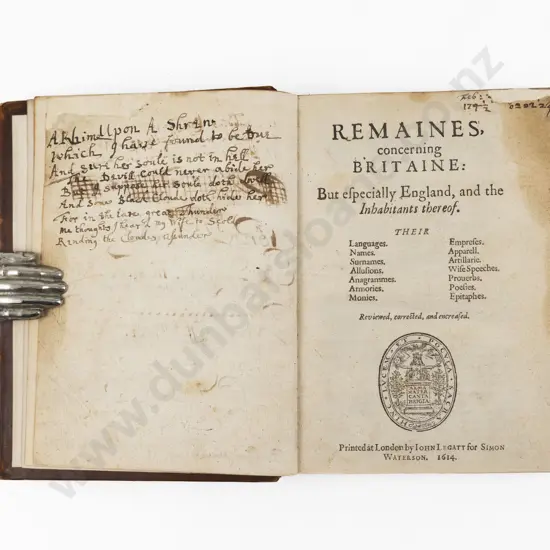 A Rhime Upon A Shrow
Which I have found to be true
And sure her soule is not in hell
The Devill could never abide her
But I suppose her soule doth
And Some Black Cloude doth hide her
For in the late great Thunder
Me thoughts I heard my wife to Scold
Rending the Cloudes asunder
Feb: 2
174
REMAINES,
concerning
BRITAINE:
But eſpecially England, and the
Inhabitants thereof.
THEIR
Languages.
Names.
Surnames.
Alluſions.
Anagrammes.
Armories.
Monies.
Empreſes.
Apparell.
Artillarie.
Wiſe Speeches.
Prouerbs.
Poeſies.
Epitaphes.
Reviewed, corrected, and encreaſed.
HINC LVCEM ET POCVLA SACRA
ALMA
MATER
CANTA
BRIGIA
Printed at London by IOHN LEGATT for SIMON
WATERSON. 1614.
www.dunbarsloane.co.nz